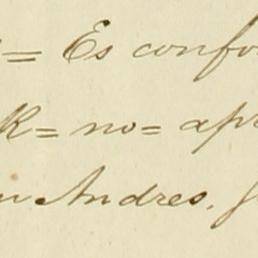 = Es confo
K= no= apr
n Andres,